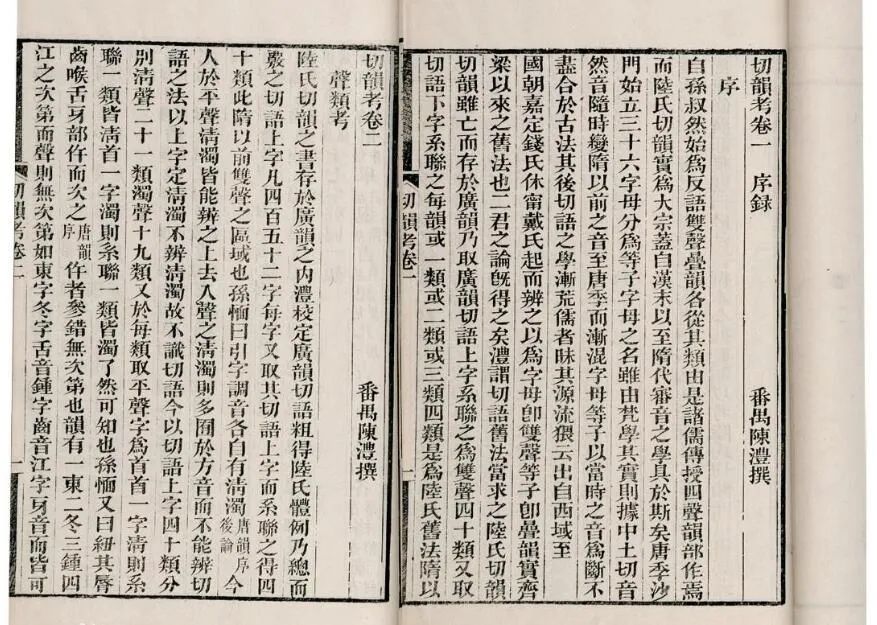 切韻考卷一　序録
番禺陳澧撰
序
自孫叔然始爲反語雙聲疊韻各從其類由是諸儒傳授四聲韻部作焉
而陸氏切韻實爲大宗蓋自漢末以至隋代審音之學具於斯矣唐季沙
門始立三十六字母分爲等子字母之名雖由梵學其實則據中土切音
然音隨時變隋以前之音至唐季而漸混字母等子以當時之音爲斷不
盡合於古法其後切語之學漸荒儒者昧其源流猥云出自西域至
國朝嘉定錢氏休甯戴氏起而辨之以爲字母卽雙聲等子卽疊韻實齊
梁以來之舊法也二君之論旣得之矣澧謂切語舊法當求之陸氏切韻
切韻雖亡而存於廣韻乃取廣韻切語上字系聯之爲雙聲四十類又取
切語下字系聯之每韻或一類或二類或三類四類是爲陸氏舊法隋以
切韻考卷一
一
切韻考卷二
番禺陳澧撰
聲類考
陸氏切韻之書存於廣韻之內澧校定廣韻切語粗得陸氏體例乃總而
覈之切語上字凡四百五十二字每字又取其切語上字而系聯之得四
十類此隋以前雙聲之區域也孫愐曰引字調音各自有清濁唐韻序後論今
人於平聲清濁皆能辨之上去入聲之清濁則多囿於方音而不能辨切
語之法以上字定清濁不辨清濁故不識切語今以切語上字四十類分
別清聲二十一類濁聲十九類又於每類取平聲字爲首首一字清則系
聯一類皆清首一字濁則系聯一類皆濁了然可知也孫愐又曰紐其脣
齒喉舌牙部仵而次之唐韻序仵者參錯無次第也韻有一東二冬三鍾四
江之次第而聲則無次第如東字冬字舌音鍾字齒音江字牙音而皆可
切韻考卷二